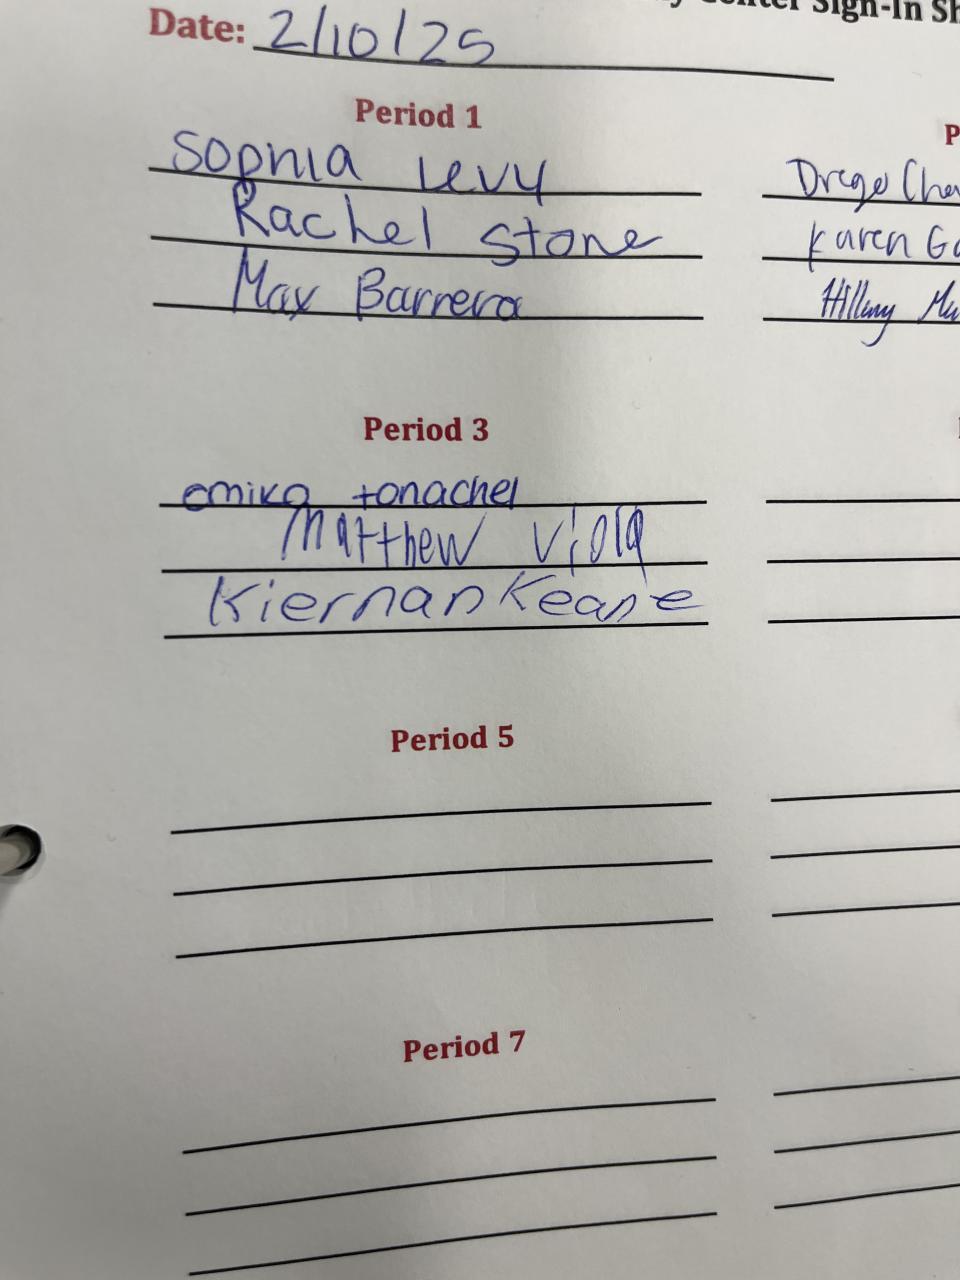 Center Sign-In Sh
Date: 2/10/25
Period 1
Sophia Levy
Rachel Stone
Max Barrera
P
Drego Cha
Karen Ga
Hillary Mu
Period 3
emiko tonachel
Matthew Viola
Kiernan Keane
Period 5
Period 7